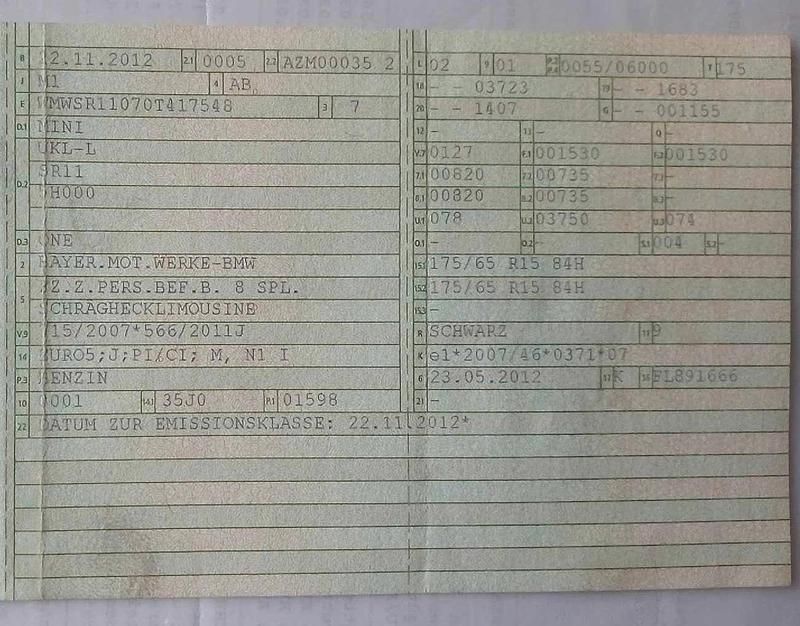 B 22.11.2012 2.1 0005 2.2 AZM00035 2
J M1 4 AB
E WMWSR11070T417548 3 7
D.1 MINI
D.2 UKL-L
SR11
SH000
D.3 ONE
2 BAYER.MOT.WERKE-BMW
5 FZ.Z.PERS.BEF.B. 8 SPL.
SCHRAGHECKLIMOUSINE
V.9 715/2007*566/2011J
14 EURO5;J;PI/CI; M, N1 I
P.3 BENZIN
10 0001 14.1 35J0 P.1 01598
22 DATUM ZUR EMISSIONSKLASSE: 22.11.2012*
L 02 9 01 P.2 P.4 0055/06000 T 175
18 - - 03723 19 - - 1683
20 - - 1407 G - - 001155
12 - 13 - Q -
V.7 0127 F.1 001530 F.2 001530
7.1 00820 7.2 00735 7.3 -
8.1 00820 8.2 00735 8.3 -
U.1 078 U.2 03750 U.3 074
O.1 - O.2 - S.1 004 S.2 -
15.1 175/65 R15 84H
15.2 175/65 R15 84H
15.3 -
R SCHWARZ 11 9
K e1*2007/46*0371*07
6 23.05.2012 17 K 16 FL891666
21 -